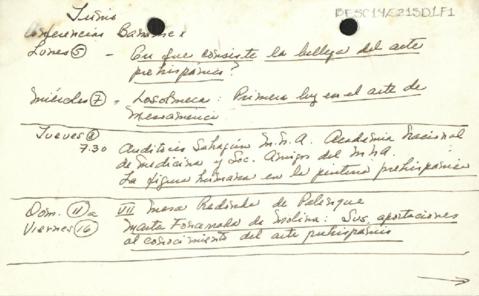 Junio
BFSC14E215D1F1
Conferencias Banamex
Lunes 5 - En que consiste la belleza del arte
prehispánico?
Miércoles 7 - Los olmeca: Primera luz en el arte de
Mesoamerica
Jueves 8
7.30 Auditorio Sahagún M.N.A. Academia Nacional
de Medicina y Soc. Amigos del MNA.
La figura humana en la pintura prehispánica
Dom. 11 a VII Mesa Redonda de Palenque
Viernes 16 Marta Foncerrada de Molina: Sus aportaciones
al conocimiento del arte prehispánico